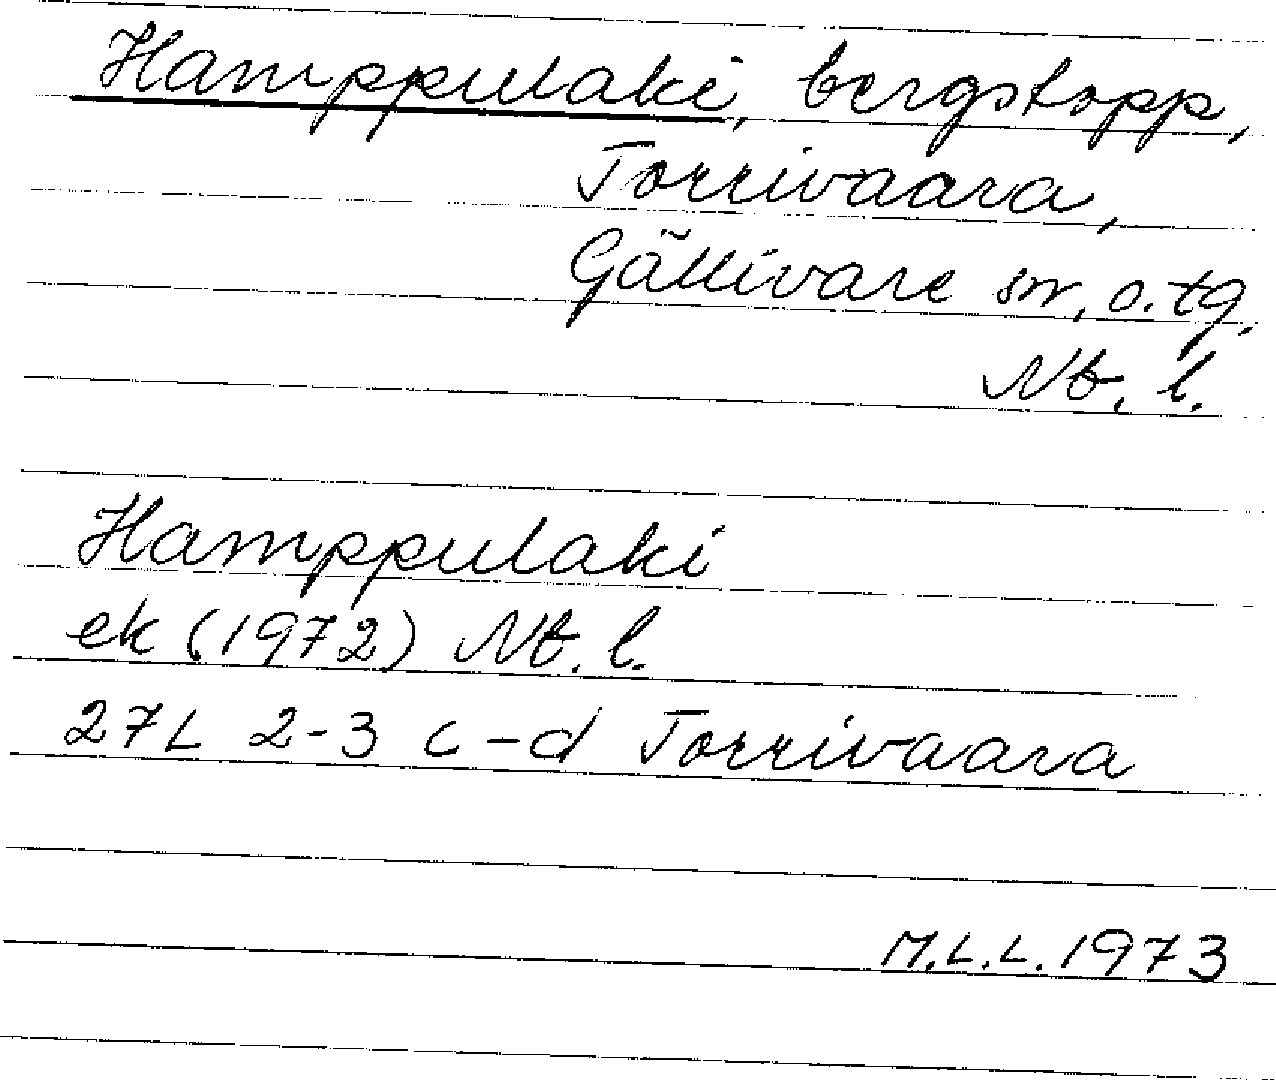 Hamppulaki, bergstopp,
Torrivaara,
Gällivare sn, o. tg,
Nb. l.
Hamppulaki
ek (1972) Nb. l.
27L 2-3 c-d Torrivaara
M.L.L. 1973